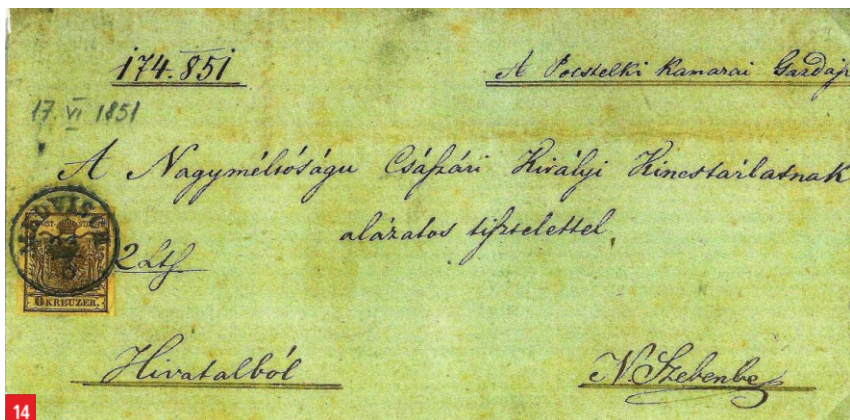 174.851
A Pocstelki Kamarai Gazdaj
17. VI 1851
A Nagyméltóságu Császári Királyi Kincstárlatnak
alázatos tisztelettel
MEDVISCH
2 Lth
6 KREUZER.
Hivatalból
N. Szebenbe
14